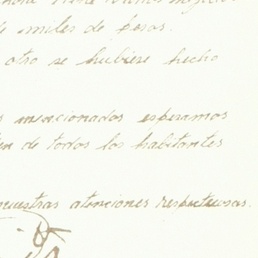 de miles de pesos.
otro se hubiese hecho
mencionados esperamos
de todos los habitantes
nuestras atenciones respetuosas.